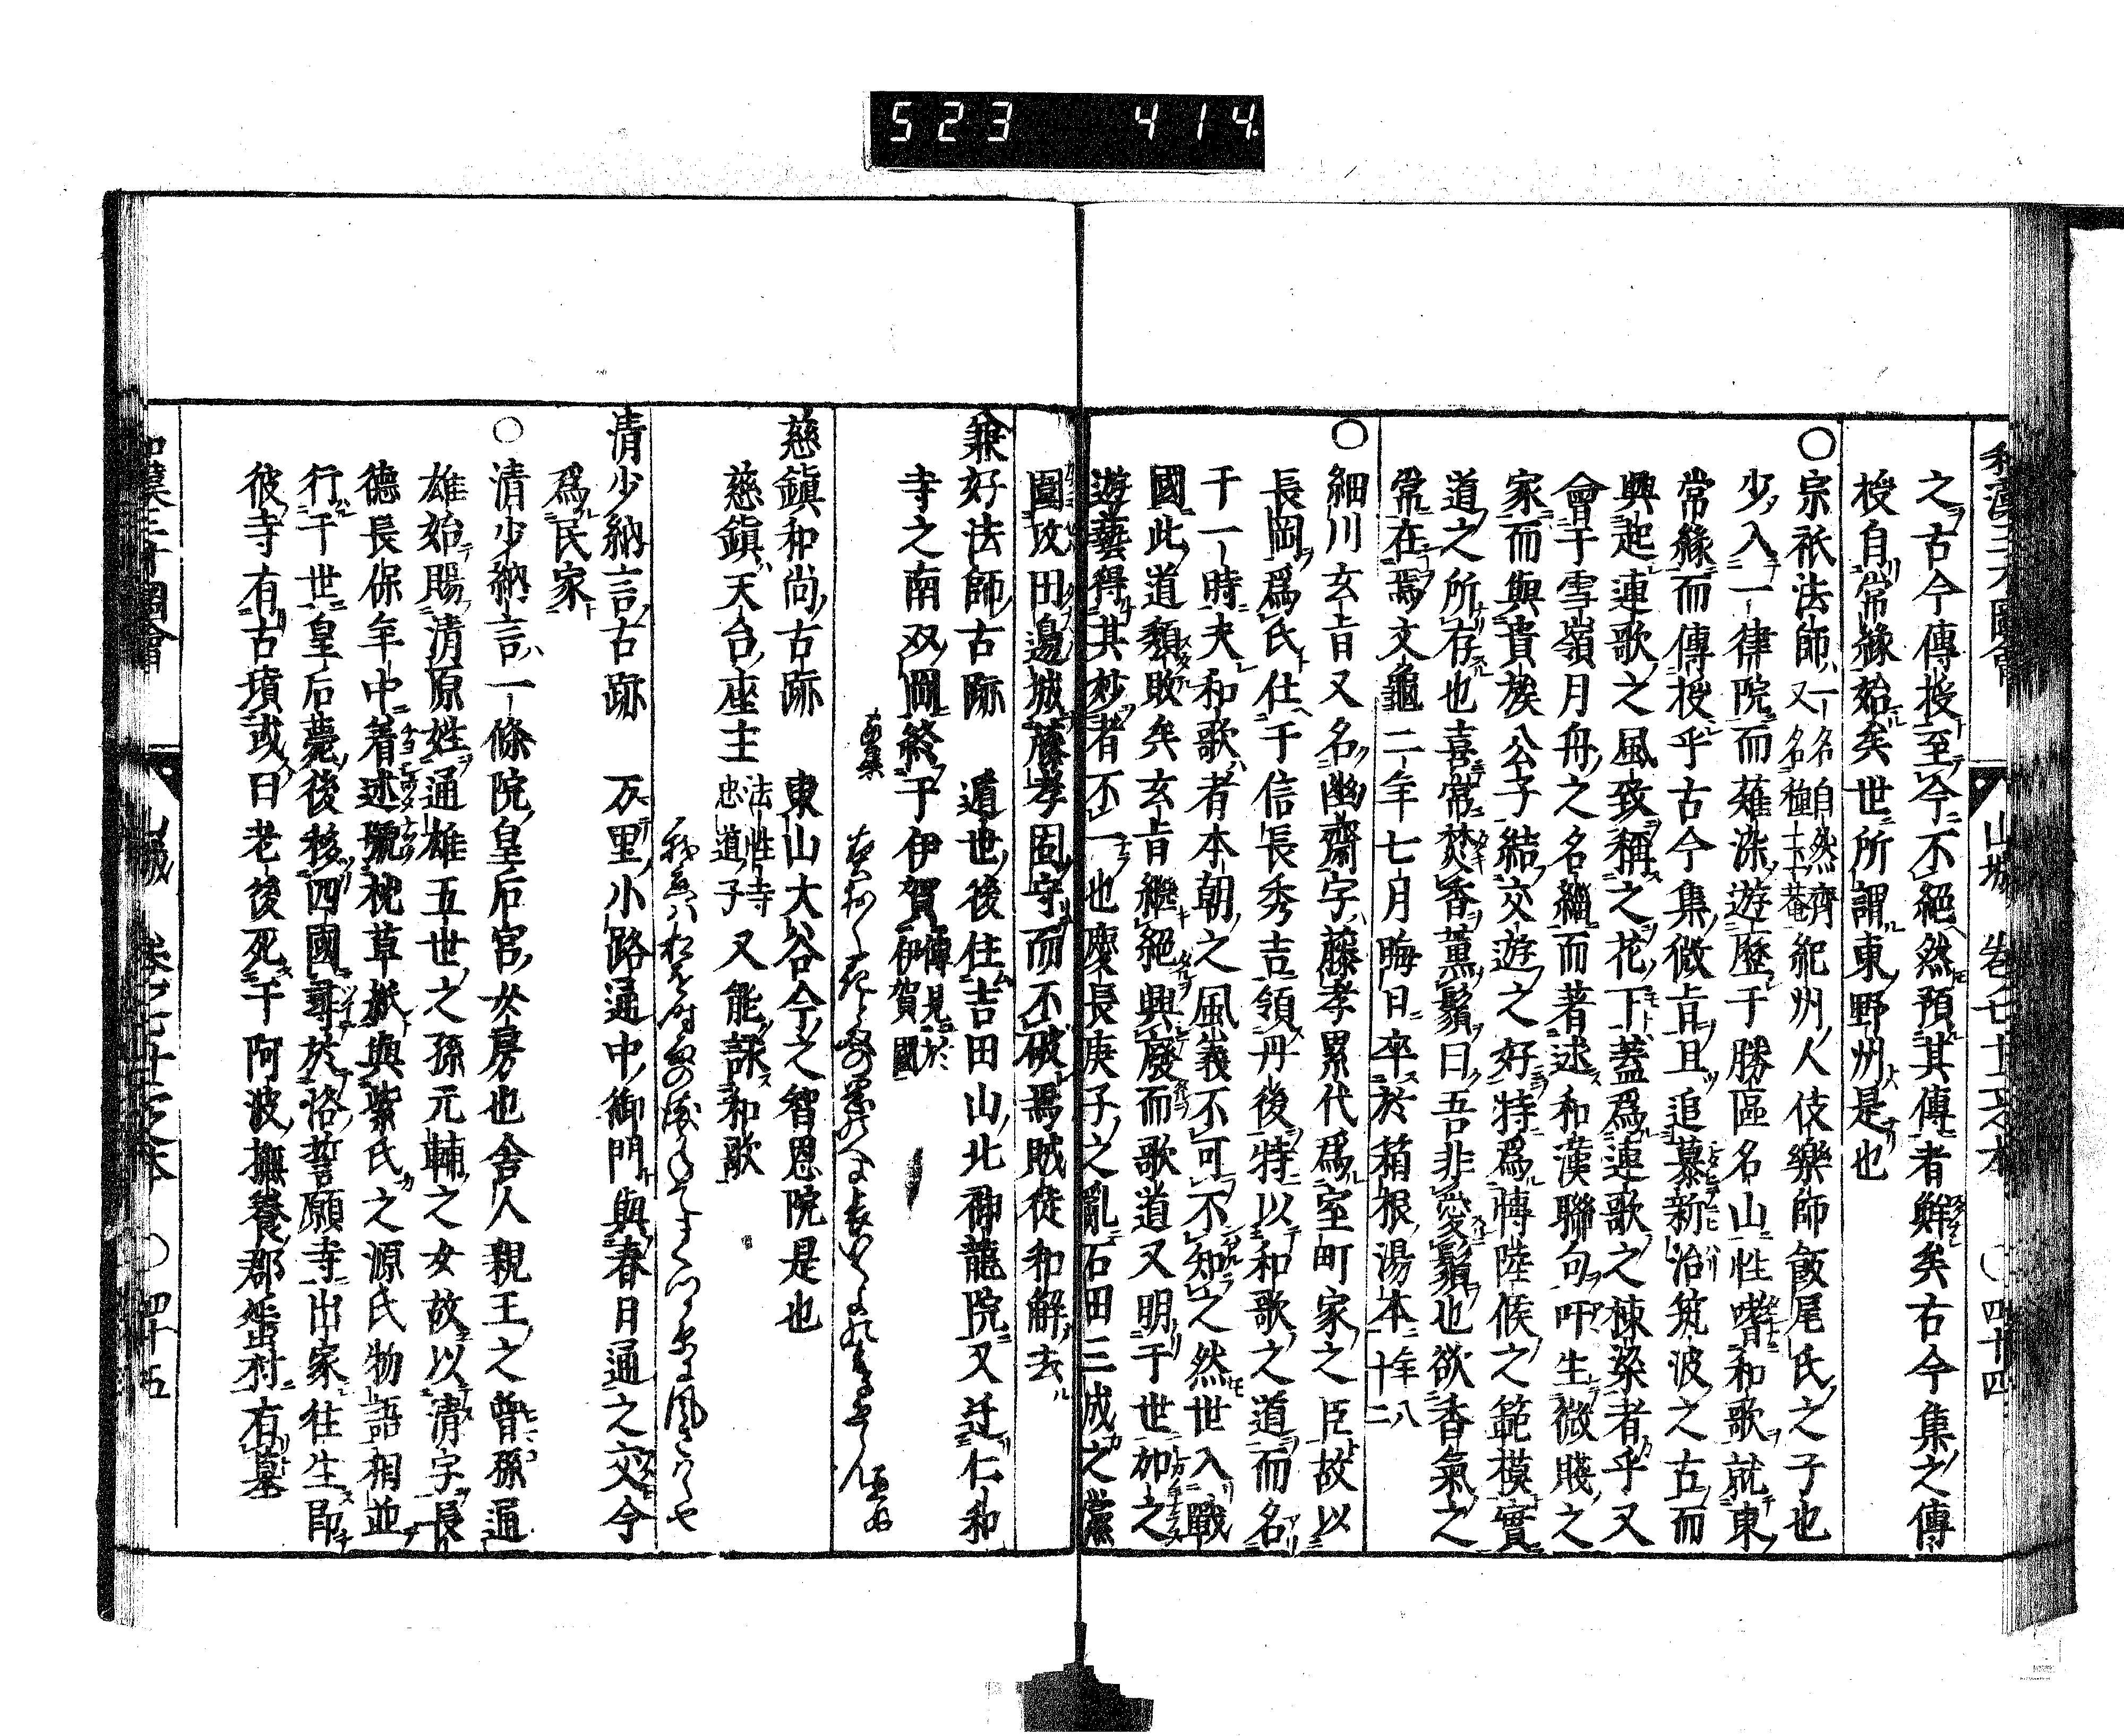 523 414
和漢三才圖會 山城 卷七十二之本 ○ 四十四
之古今傳授至今不絕然預其傳者鮮矣右今集之傳
授自常緣始矣世所謂東野州是也
○宗祇法師 一名自然齋 又名種玉菴 紀州人伎樂師飯尾氏之子也
少入一律院而薙染遊歷于勝區名山性嗜和歌就東
常緣而傳授乎古今集微旨且追慕新治筑波之古而
興起連歌之風致稱之花下蓋爲連歌之棟梁者乎又
會于雪嶺月舟之名緇而著述和漢聯句吅生微賤之
家而與貴族公子結交遊之好特爲轉陸候之範模實
道之所存也喜常焚香薰鬚曰吾非愛鬚也欲香氣之
常在焉文龜二年七月晦日卒於箱根湯本 年八十二
○細川玄旨又名幽齋字藤孝累代爲室町家之臣故以
長岡爲氏仕于信長秀吉領丹後特以和歌之道而名
于一時夫和歌者本朝之風義不可不知之然世入戰
國此道頽敗矣玄旨繼絕興廢而歌道又明于世加之
遊藝得其妙者不一也慶長庚子之亂石田三成之黨
圍攻田邊城藤孝固守而不破焉賊徒和解去
兼好法師古跡 遁世後住吉田山北神龍院又迁仁和
寺之南双岡終于伊賀 傳見於伊賀國
慈鎭和尚古跡 東山大谷今之智恩院是也
慈鎭天台座主 法性寺忠道子 又能詠和歌
清少納言古跡 万里小路通中御門與春日通之交今
爲民家
○清少納言一條院皇后宮女房也舍人親王之曾孫通
雄始賜清原姓通雄五世之孫元輔之女故以清字長
德長保年中著述號枕草紙與紫氏之源氏物語相並
行于世皇后薨後移四國尋於洛誓願寺出家往生卽
彼寺有古墳或曰老後死于阿波撫養郡蜑村有墓
和漢三才圖會 山城 卷七十二之本 ○ 四十五